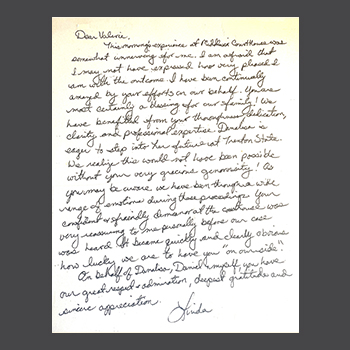 Dear Valerie,
This morning's experience at Courthouse was
somewhat unnerving for me. I am afraid that
I may not have expressed how very pleased I
am with the outcome. I have been continually
amazed by your efforts on our behalf. You are
most certainly a blessing for our family! We
have benefited from your thoroughness, dedication,
clarity and professional expertise. is
eager to step into her future at Trenton State.
We realize this would not have been possible
without your very gracious generosity! As
you may be aware we have been through a wide
range of emotions during these proceedings. Your
competent & friendly demeanor at the courthouse was
very reassuring to me personally before our case
was heard. It became quickly and clearly obvious
how lucky we are to have you "on our side".
On behalf of , Daniel & myself you have
our great respect & admiration, deepest gratitude and
sincere appreciation.
Linda